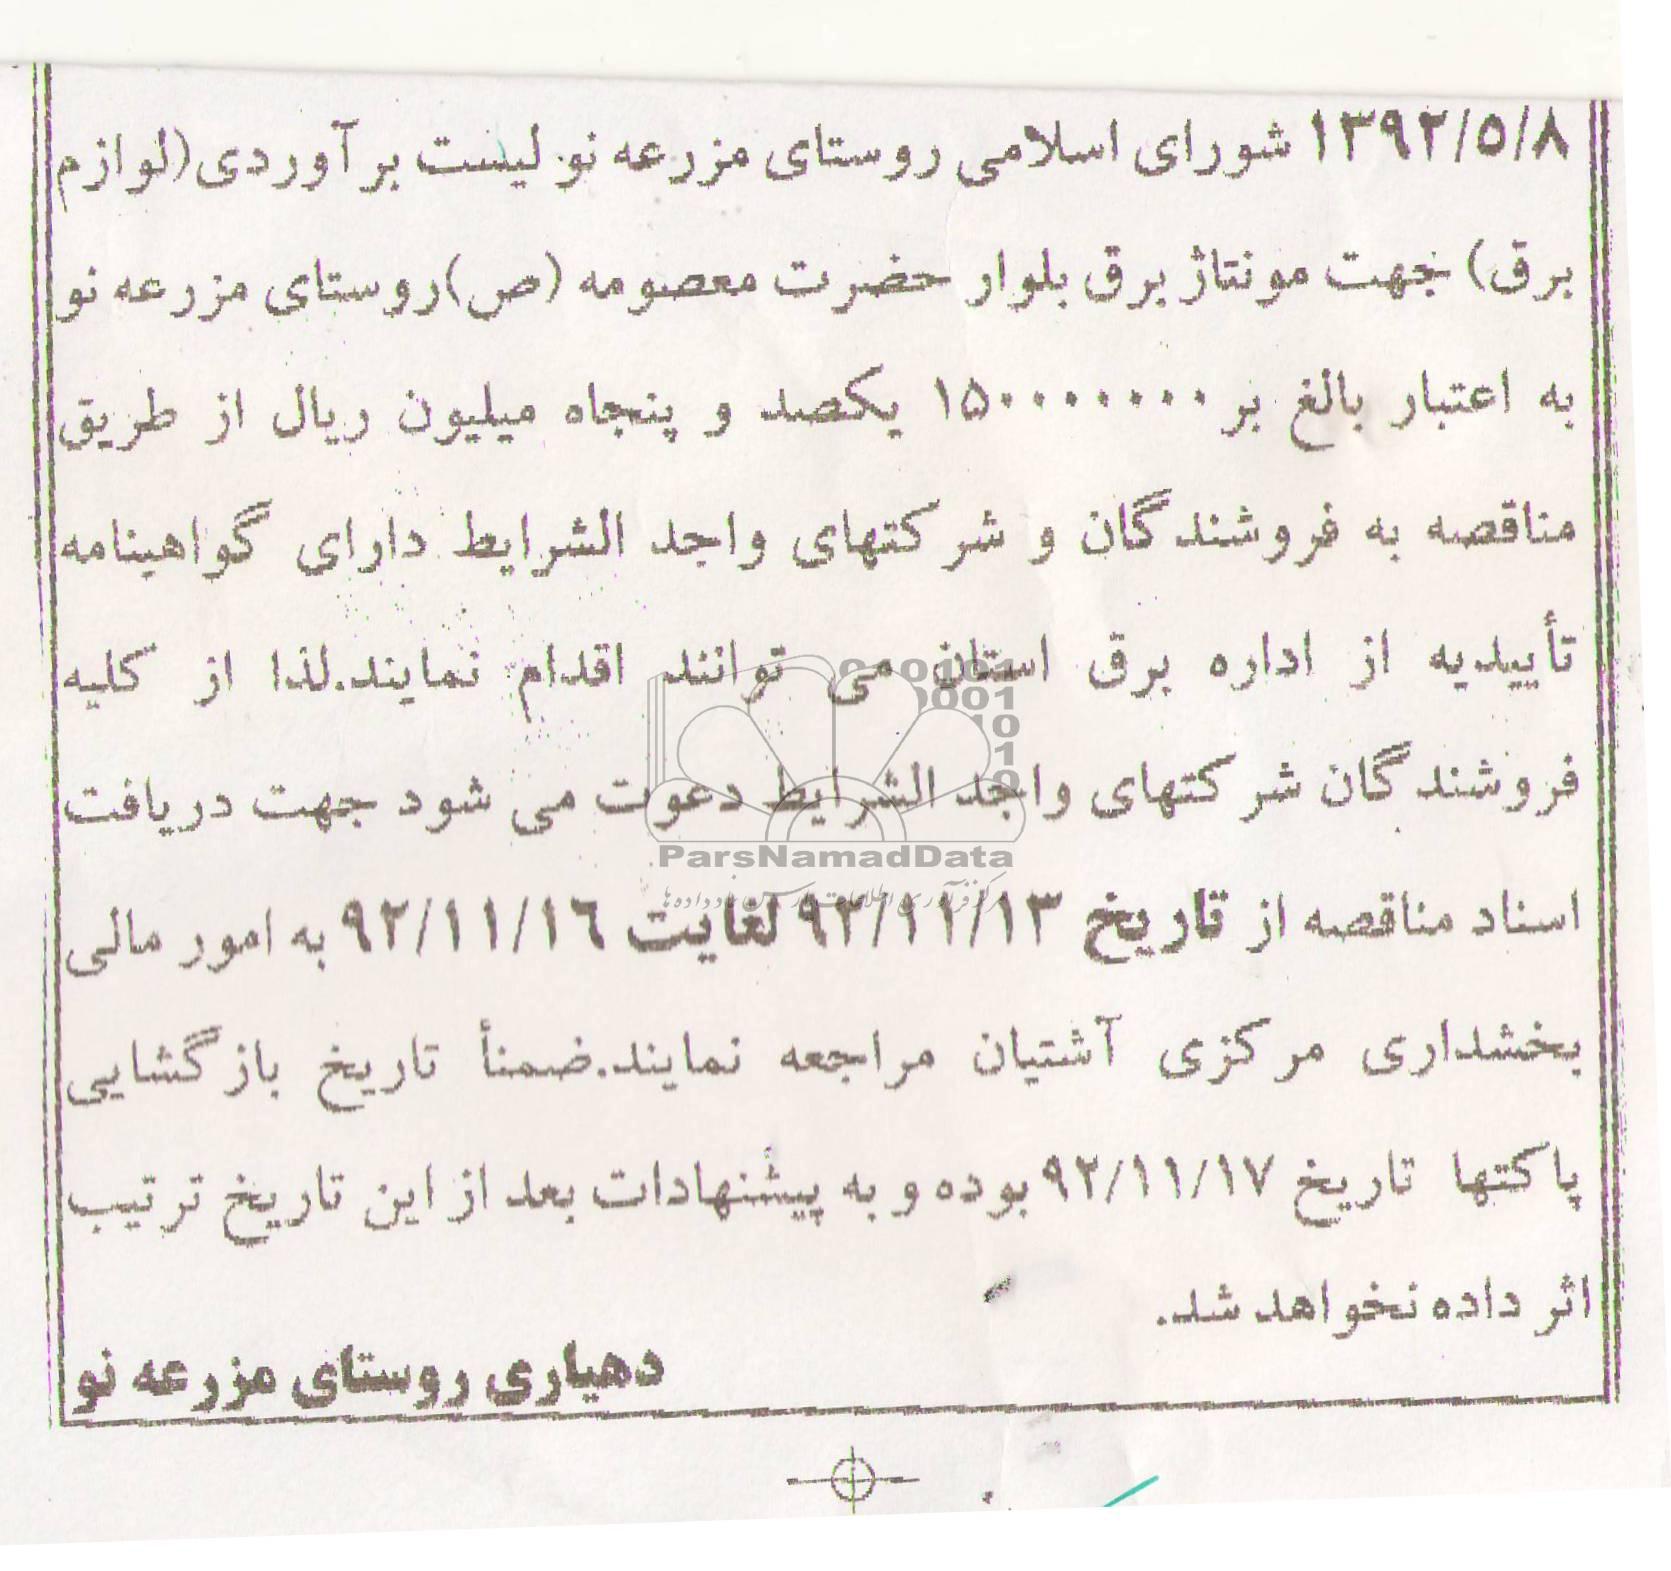 ۱۳۹۲/۵/۸ شورای اسلامی روستای مزرعه نو لیست برآوردی(لوازم
برق) جهت مونتاژ برق بلوار حضرت معصومه (ص)روستای مزرعه نو
به اعتبار بالغ بر ۱۵۰۰۰۰۰۰۰ یکصد و پنجاه میلیون ریال از طریق
مناقصه به فروشندگان و شرکتهای واجد الشرایط دارای گواهینامه
تأییدیه از اداره برق استان می توانند اقدام نمایند.لذا از کلیه
فروشندگان شرکتهای واجد الشرایط دعوت می شود جهت دریافت
اسناد مناقصه از تاریخ ۹۲/۱۱/۱۳ لغایت ۹۲/۱۱/۱۶ به امور مالی
بخشداری مرکزی آشتیان مراجعه نمایند.ضمنأ تاریخ بازگشایی
پاکتها تاریخ ۹۲/۱۱/۱۷ بوده و به پیشنهادات بعد از این تاریخ ترتیب
اثر داده نخواهد شد.
دهیاری روستای مزرعه نو
ParsNamadData
مرکز فرآوری اطلاعات پارس نماد داده ها